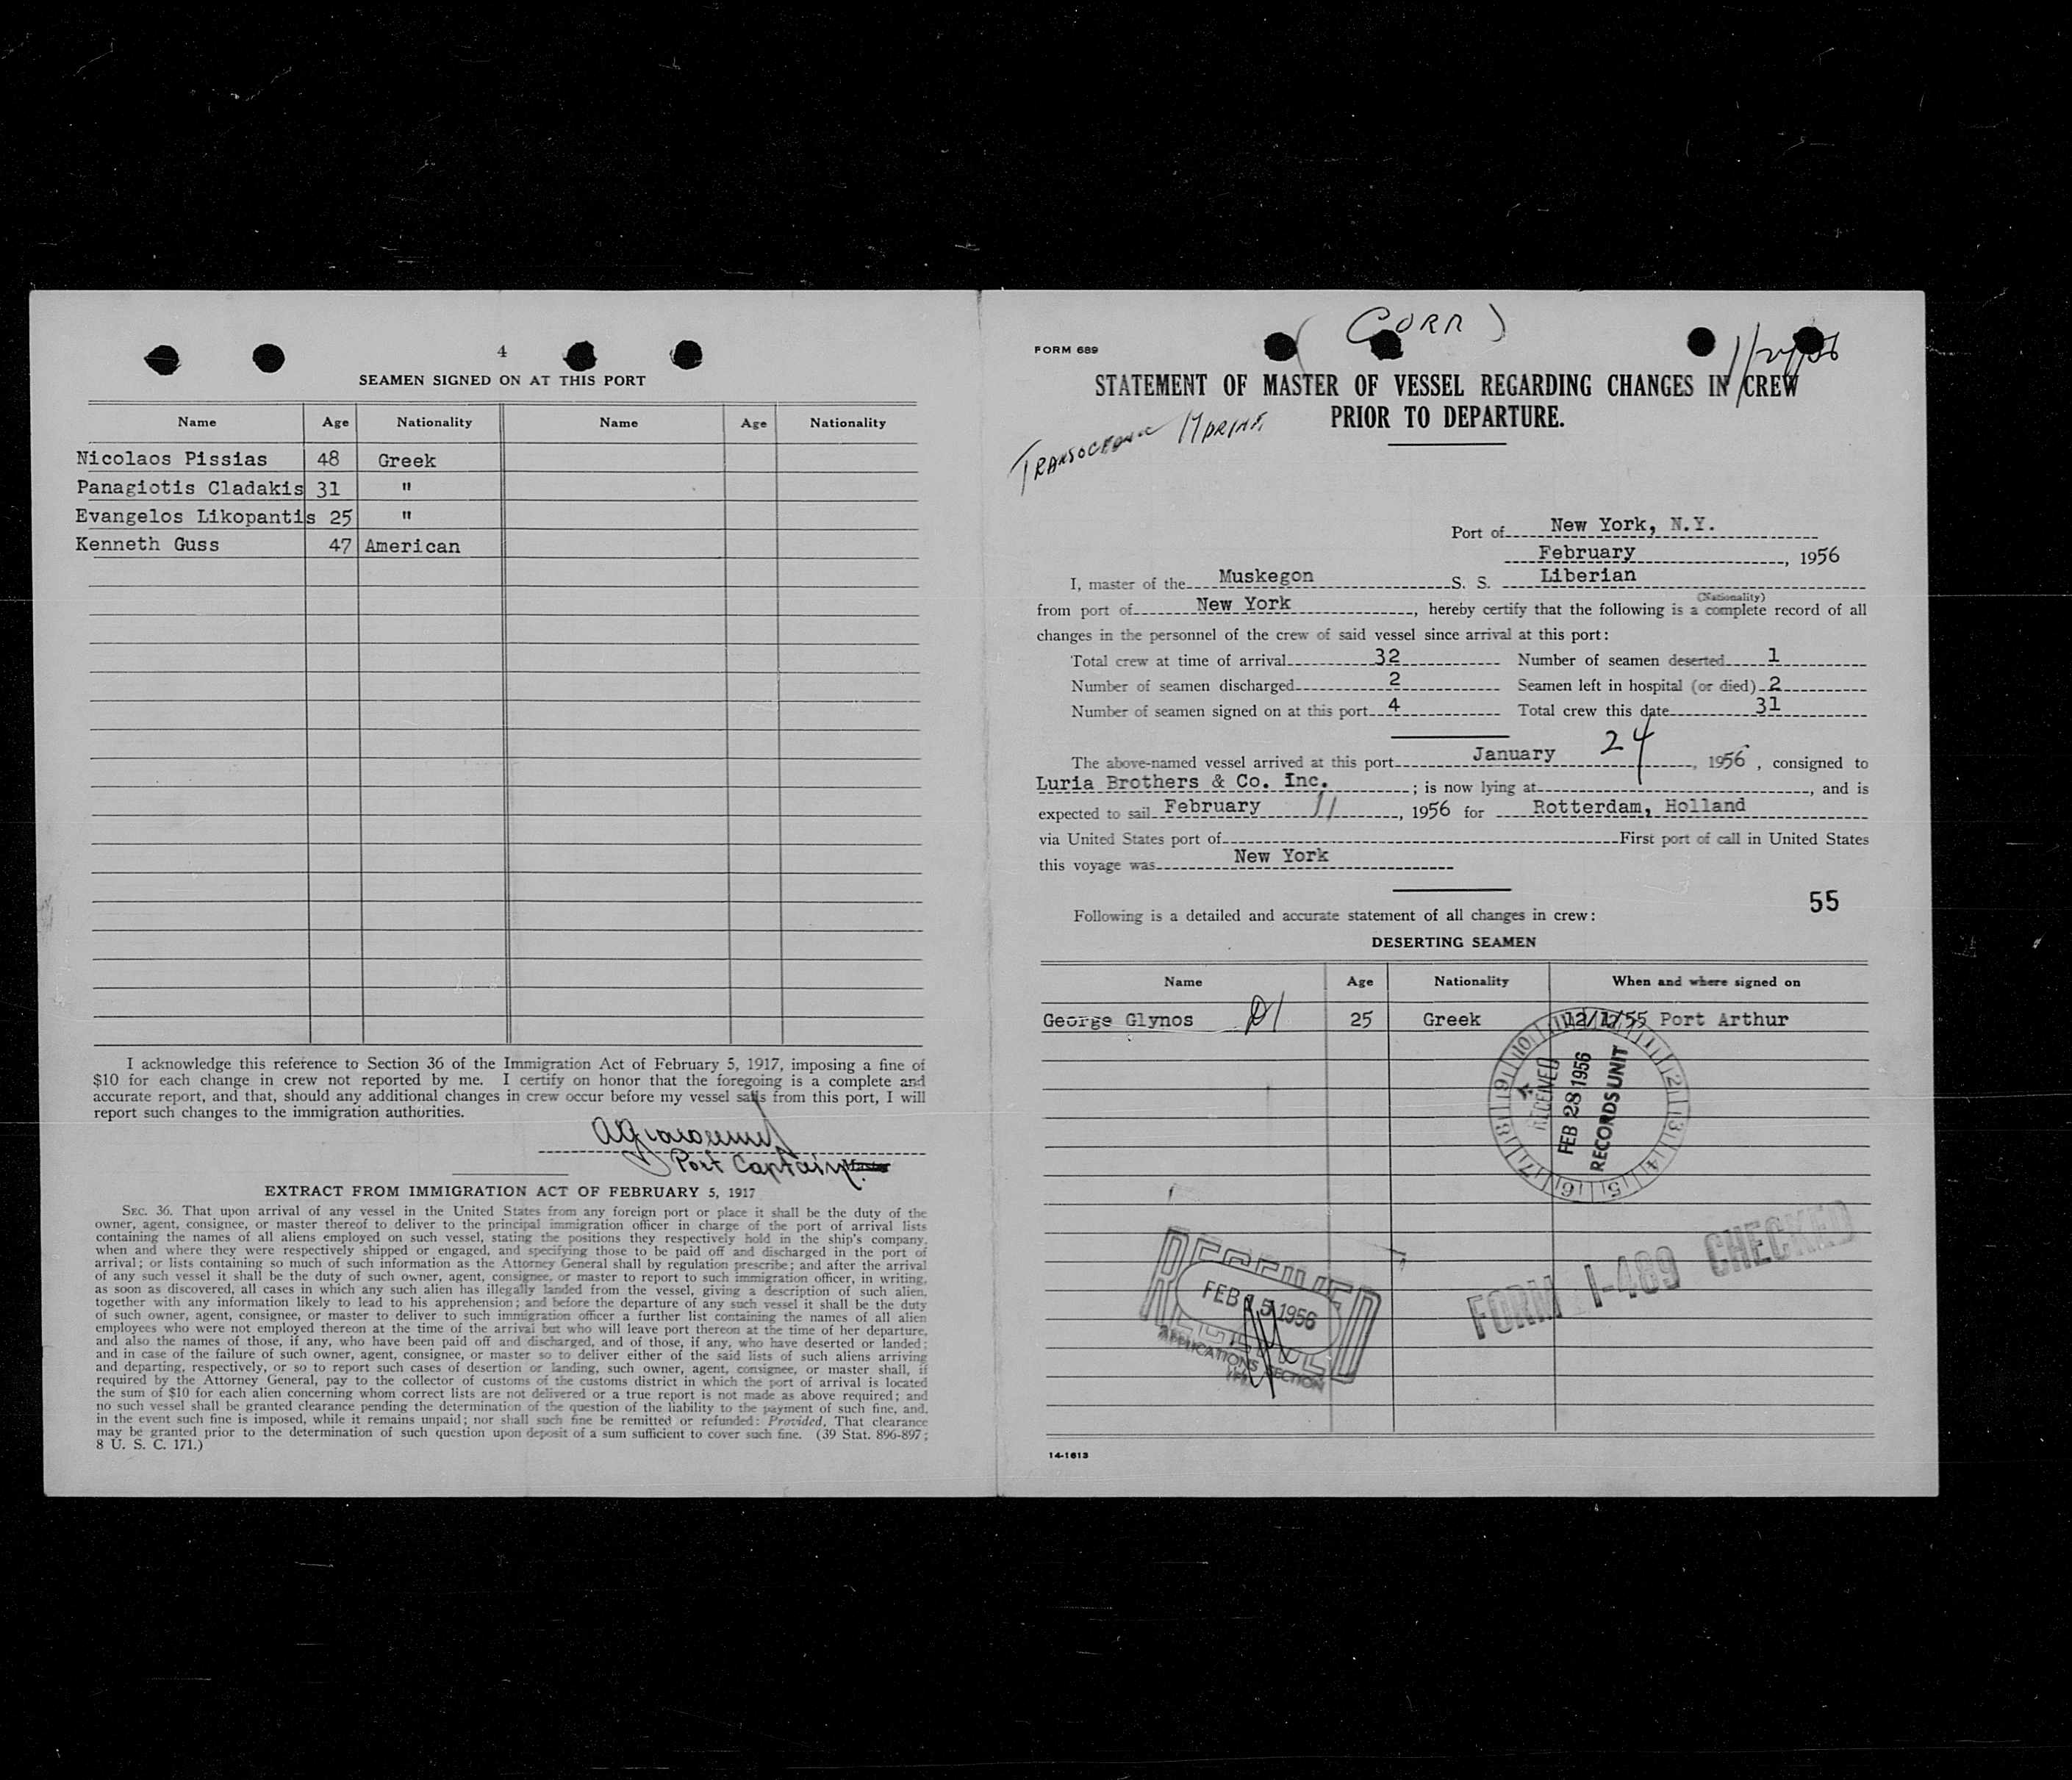 4
SEAMEN SIGNED ON AT THIS PORT
Name Age Nationality Name Age Nationality
Nicolaos Pissias 48 Greek
Panagiotis Cladakis 31 "
Evangelos Likopantis 25 "
Kenneth Guss 47 American
I acknowledge this reference to Section 36 of the Immigration Act of February 5, 1917, imposing a fine of
$10 for each change in crew not reported by me. I certify on honor that the foregoing is a complete and
accurate report, and that, should any additional changes in crew occur before my vessel sails from this port, I will
report such changes to the immigration authorities.
Port Captain
EXTRACT FROM IMMIGRATION ACT OF FEBRUARY 5, 1917
SEC. 36. That upon arrival of any vessel in the United States from any foreign port or place it shall be the duty of the
owner, agent, consignee, or master thereof to deliver to the principal immigration officer in charge of the port of arrival lists
containing the names of all aliens employed on such vessel, stating the positions they respectively hold in the ship's company,
when and where they were respectively shipped or engaged, and specifying those to be paid off and discharged in the port of
arrival; or lists containing so much of such information as the Attorney General shall by regulation prescribe; and after the arrival
of any such vessel it shall be the duty of such owner, agent, consignee, or master to report to such immigration officer, in writing,
as soon as discovered, all cases in which any such alien has illegally landed from the vessel, giving a description of such alien,
together with any information likely to lead to his apprehension; and before the departure of any such vessel it shall be the duty
of such owner, agent, consignee, or master to deliver to such immigration officer a further list containing the names of all alien
employees who were not employed thereon at the time of the arrival but who will leave port thereon at the time of her departure,
and also the names of those, if any, who have been paid off and discharged, and of those, if any, who have deserted or landed;
and in case of the failure of such owner, agent, consignee, or master so to deliver either of the said lists of such aliens arriving
and departing, respectively, or so to report such cases of desertion or landing, such owner, agent, consignee, or master shall, if
required by the Attorney General, pay to the collector of customs of the customs district in which the port of arrival is located
the sum of $10 for each alien concerning whom correct lists are not delivered or a true report is not made as above required; and
no such vessel shall be granted clearance pending the determination of the question of the liability to the payment of such fine, and,
in the event such fine is imposed, while it remains unpaid; nor shall such fine be remitted or refunded: Provided, That clearance
may be granted prior to the determination of such question upon deposit of a sum sufficient to cover such fine. (39 Stat. 896-897;
8 U. S. C. 171.)
(CORR)
FORM 689
STATEMENT OF MASTER OF VESSEL REGARDING CHANGES IN CREW
PRIOR TO DEPARTURE.
TRANSOCEANIC MARINE
Port of New York, N.Y.
February, 1956
I, master of the Muskegon S. S. Liberian
(Nationality)
from port of New York, hereby certify that the following is a complete record of all
changes in the personnel of the crew of said vessel since arrival at this port:
Total crew at time of arrival 32 Number of seamen deserted 1
Number of seamen discharged 2 Seamen left in hospital (or died) 2
Number of seamen signed on at this port 4 Total crew this date 31
The above-named vessel arrived at this port January 24, 1956, consigned to
Luria Brothers & Co. Inc.; is now lying at, and is
expected to sail February 11, 1956 for Rotterdam, Holland
via United States port of First port of call in United States
this voyage was New York
55
Following is a detailed and accurate statement of all changes in crew:
DESERTING SEAMEN
Name Age Nationality When and where signed on
George Glynos D1 25 Greek 12/1/55 Port Arthur
RECEIVED
FEB 28 1956
RECORDS UNIT
1 2 3 4 5 6 7 8 9 10 11 12
RECEIVED
FEB 15 1956
APPLICATIONS SECTION
FORM I-489 CHECKED
14-1613